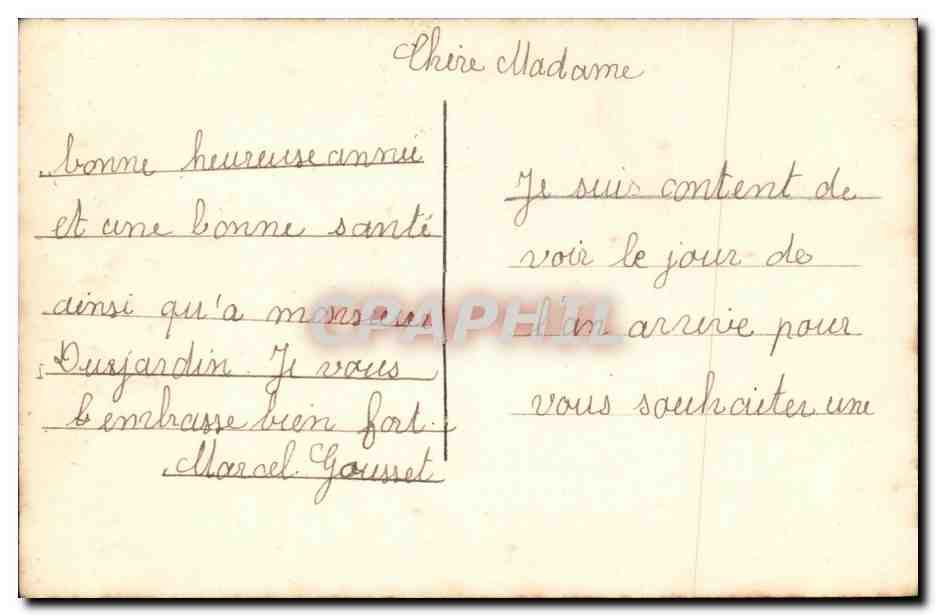 Chère Madame
Je suis content de
voir le jour de
l'an arrive pour
vous souhaiter une
bonne heureuse année
et une bonne santé
ainsi qu'a monsieur
Dusjardin. Je vous
embrasse bien fort.
Marcel Gousset
CPAPHIL